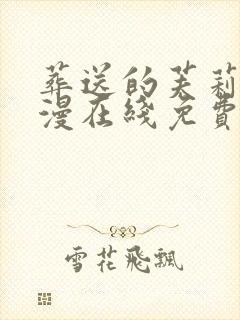 葬送的芙莉
漫在綫免費
雪花飛飄